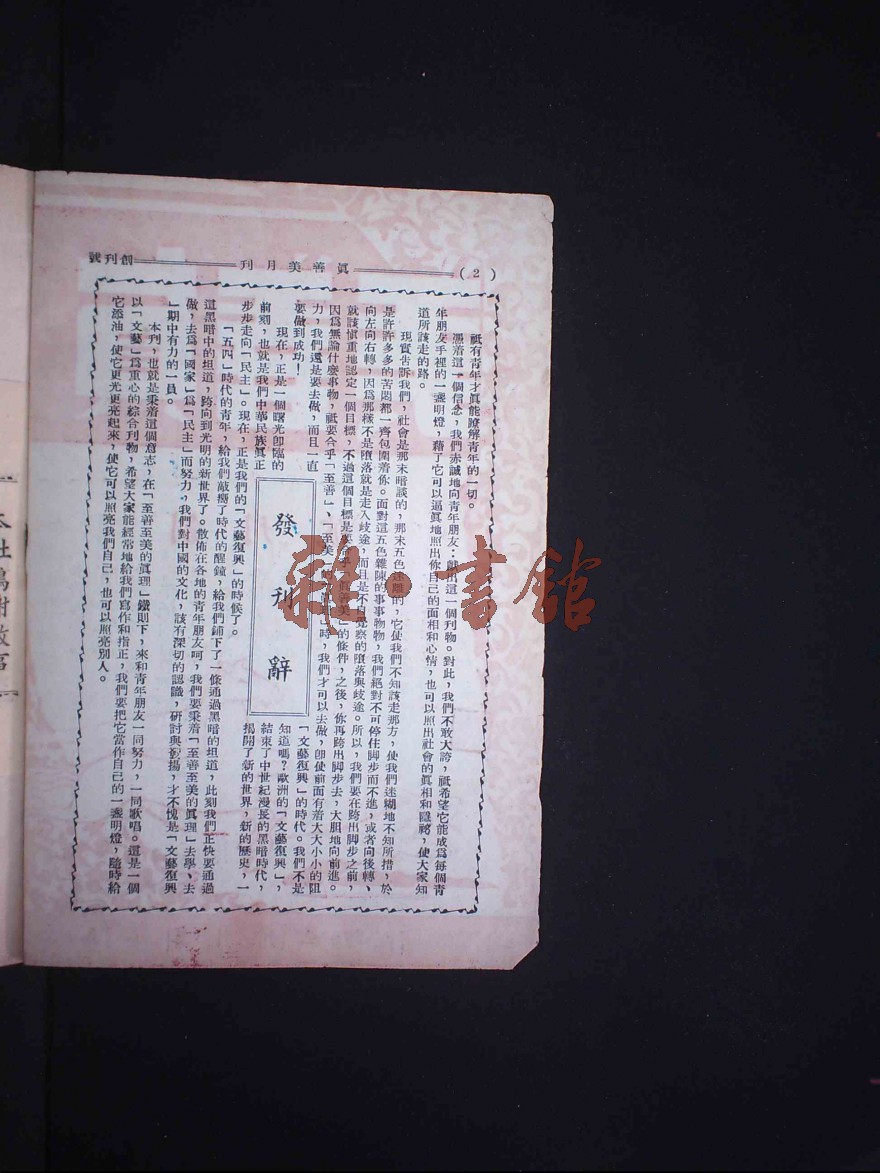 （2） 眞善美月刊 創刊號
發刊辭
祇有青年才眞能瞭解青年的一切。
憑着這一個信念，我們赤誠地向青年朋友：獻出這一個刊物。對此，我們不敢大誇，祇希望它能成爲每個青
年朋友手裡的一盞明燈，藉了它可以逼眞地照出你自己的面相和心情，也可以照出社會的眞相和隱祕，使大家知
道所該走的路。
現實告訴我們，社會是那末暗談的，那末五色迷離的，它使我們不知該走那方，使我們迷糊地不知所措，於
是許許多多的苦悶都一齊包圍着你。面對這五色雜陳的事事物物，我們絕對不可停住脚步而不進，或者向後轉、
向左向右轉，因爲那樣不是墮落就是走入歧途，而且是不自覺察的墮落與歧途。所以，我們要在跨出脚步之前，
就該愼重地認定一個目標，不過這個目標是要合乎「眞善美」的條件，之後，你再跨出脚步去，大胆地向前進。
因爲無論什麽事物，祇要合乎「至善」、「至美」的」時，我們才可以去做，卽使前面有着大大小小的阻
力，我們還是要去做，而且一直
要做到成功！
現在，正是一個曙光卽臨的
前刻，也就是我們中華民族眞正
「文藝復興」的時代。我們不是
知道嗎？歐洲的「文藝復興」，
結束了中世紀漫長的黑暗時代，
揭開了新的世界，新的歷史，一
步步走向「民主」。現在，正是我們的「文藝復興」的時候了。
「五四」時代的青年，給我們敲響了時代的醒鐘，給我們鋪下了一條通過黑暗的坦道，此刻我們正快要通過
這黑暗中的坦道，跨向到光明的新世界了。散佈在各地的青年朋友呵，我們要秉着「至善至美的眞理」去學、去
做，去爲「國家」爲「民主」而努力，我們對中國的文化，該有深切的認識，研討與發揚，才不愧是「文藝復興
」期中有力的一員。
本刊，也就是秉着這個意志，在「至善至美的眞理」鐵則下，來和青年朋友一同努力，一同歌唱。這是一個
以「文藝」爲重心的綜合刊物，希望大家能經常地給我們寫作和指正，我們要把它當作自己的一盞明燈，隨時給
它添油，使它更光更亮起來，使它可以照亮我們自己，也可以照亮別人。
雜·書館